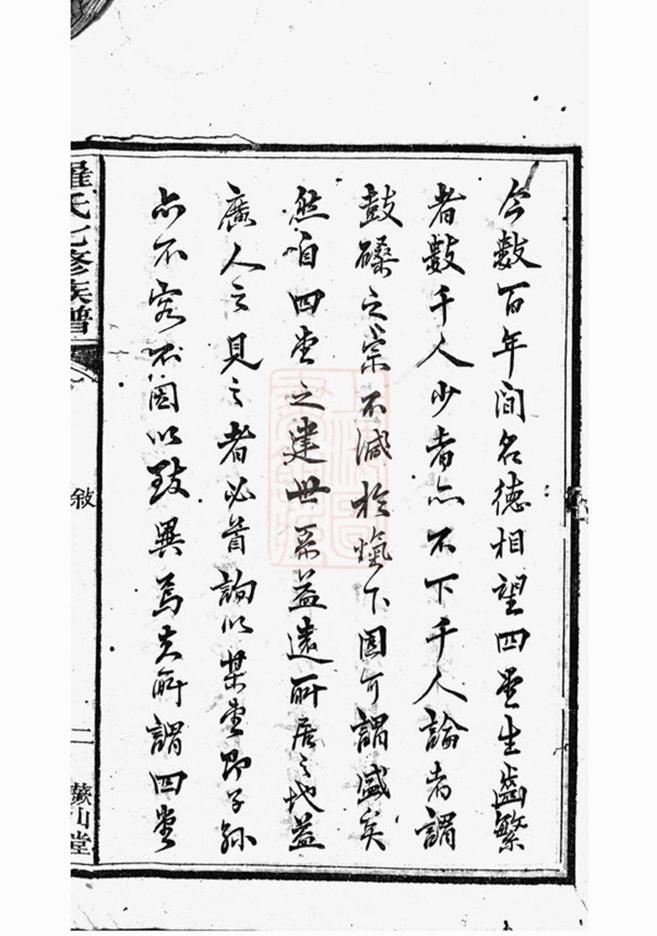 今數百年間名德相望四堂生齒繁
者數千人少者亦不下千人論者謂
鼓磉之宗不減於下固可謂盛矣
然自四堂之建世系益遠所居之地益
廣人之見之者必首詢以某堂即子孫
亦不容不因以致異焉夫所謂四堂
羅氏七修族譜
敘
二
山堂